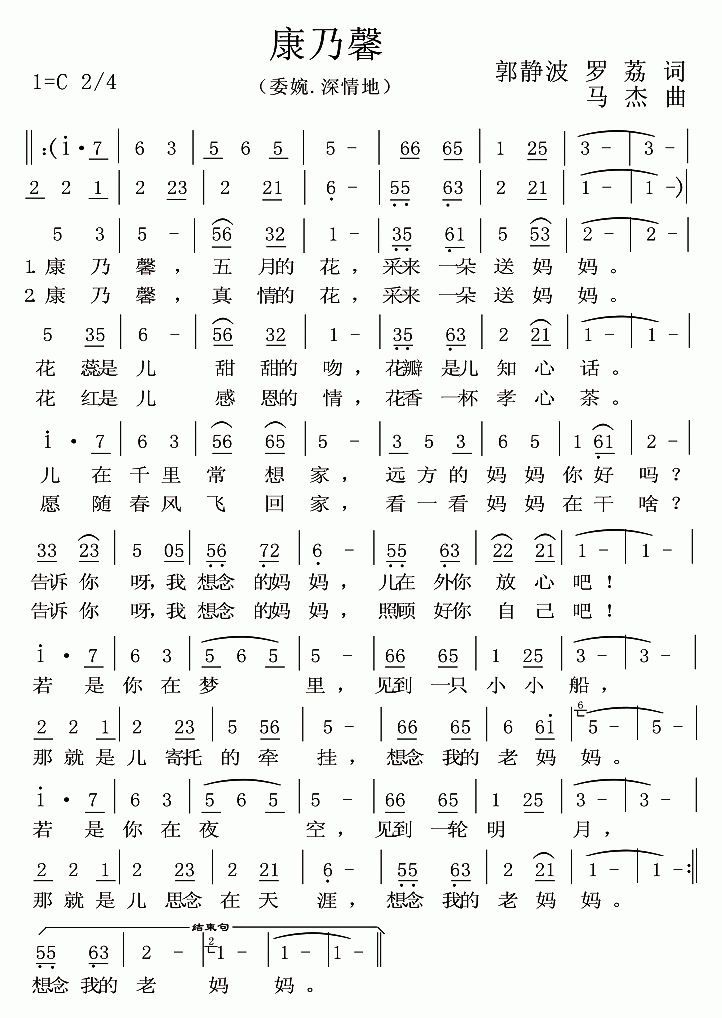 康乃馨
1=C 2/4
（委婉.深情地）
郭静波 罗荔 词
马杰 曲
‖:(i·7 | 6 3 | 5 6 5 | 5 - | 66 65 | 1 25 | 3 - | 3 - |
2 2 1 | 2 23 | 2 21 | 6 - | 55 63 | 2 21 | 1 - | 1 -)|
5 3 | 5 - | 56 32 | 1 - | 35 61 | 5 53 | 2 - | 2 - |
1.康乃馨，五月的花，采来一朵送妈妈。
2.康乃馨，真情的花，采来一朵送妈妈。
5 35 | 6 - | 56 32 | 1 - | 35 63 | 2 21 | 1 - | 1 - |
花蕊是儿甜甜的吻，花瓣是儿知心话。
花红是儿感恩的情，花香一杯孝心茶。
i·7 | 6 3 | 56 65 | 5 - | 3 5 3 | 6 5 | 1 61 | 2 - |
儿在千里常想家，远方的妈妈你好吗？
愿随春风飞回家，看一看妈妈在干啥？
33 23 | 5 05 | 56 72 | 6 - | 55 63 | 22 21 | 1 - | 1 - |
告诉你呀，我想念的妈妈，儿在外你放心吧！
告诉你呀，我想念的妈妈，照顾好你自己吧！
i·7 | 6 3 | 5 6 5 | 5 - | 66 65 | 1 25 | 3 - | 3 - |
若是你在梦里，见到一只小小船，
2 2 1 | 2 23 | 5 56 | 5 - | 66 65 | 6 6i | 6 5 - | 5 - |
那就是儿寄托的牵挂，想念我的老妈妈。
i·7 | 6 3 | 5 6 5 | 5 - | 66 65 | 1 25 | 3 - | 3 - |
若是你在夜空，见到一轮明月，
2 2 1 | 2 23 | 2 21 | 6 - | 55 63 | 2 21 | 1 - | 1 - :‖
那就是儿思念在天涯，想念我的老妈妈。
结束句
55 63 | 2 - | 2 1 - | 1 - | 1 - ‖
想念我的老妈妈。